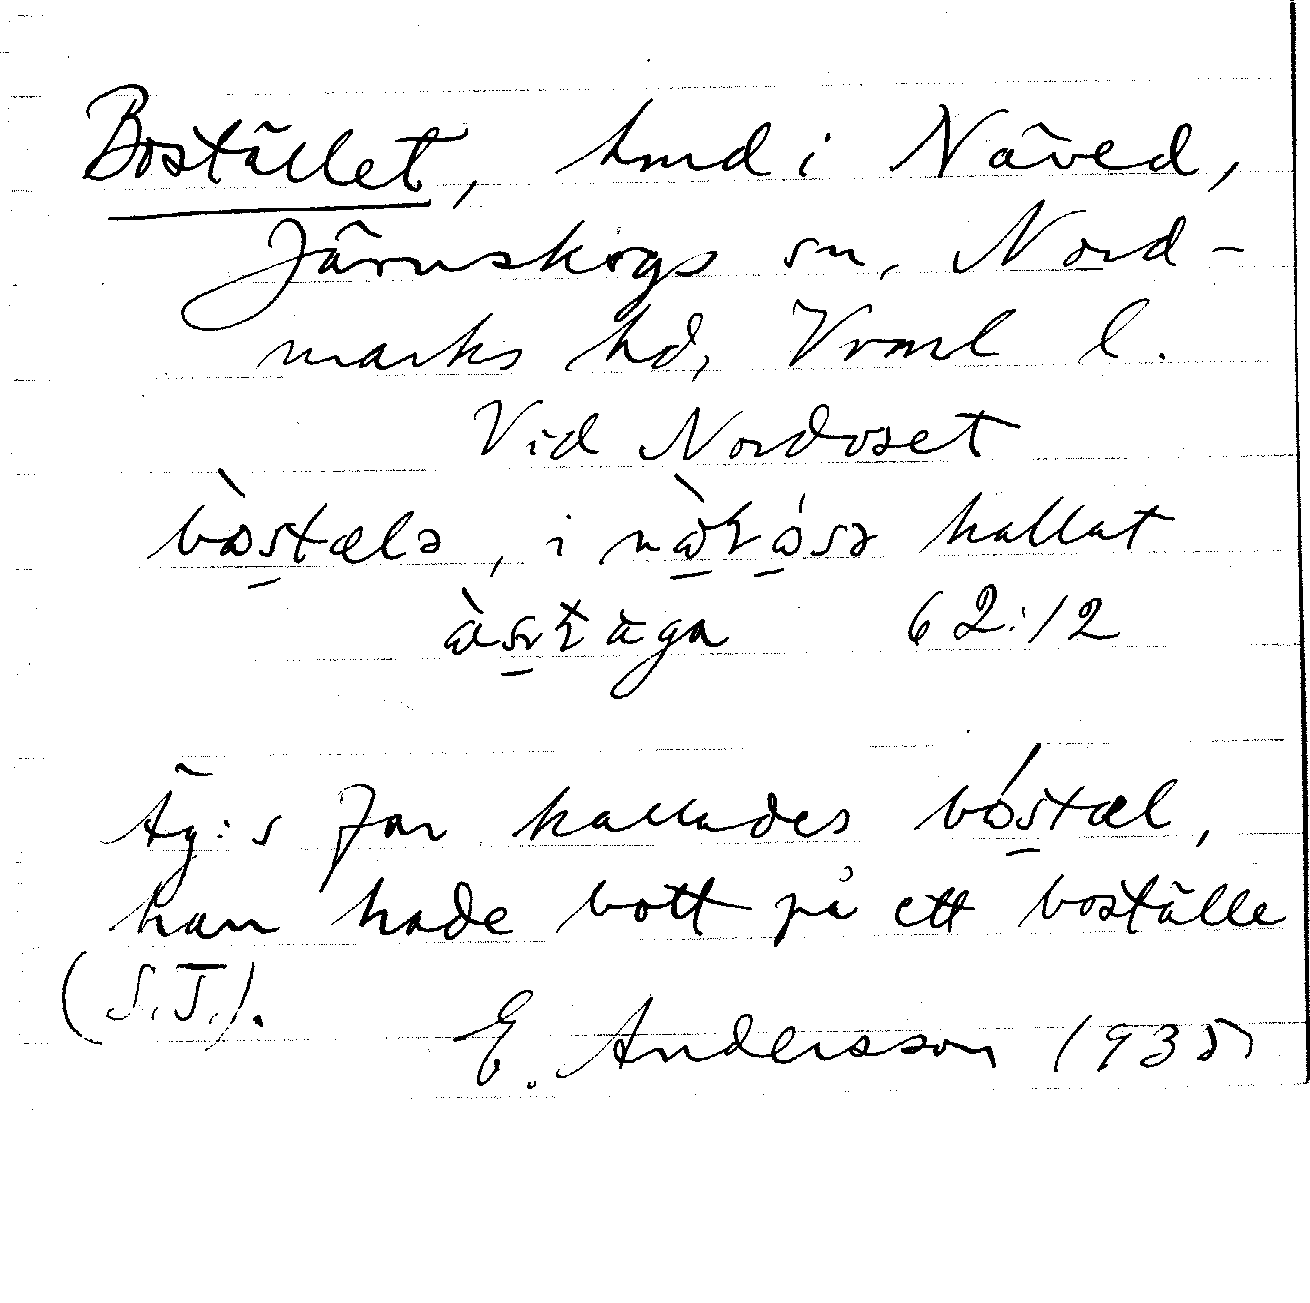 Bostället, hmd i Näved,
Järnskogs sn, Nord-
marks hd, Vrml l.
Vid Nordoset
bòstælə, i kallat
62:12
Äg:s far kallades bóstæl,
han hade bott på ett boställe
(S.J.).
E. Andersson 1935